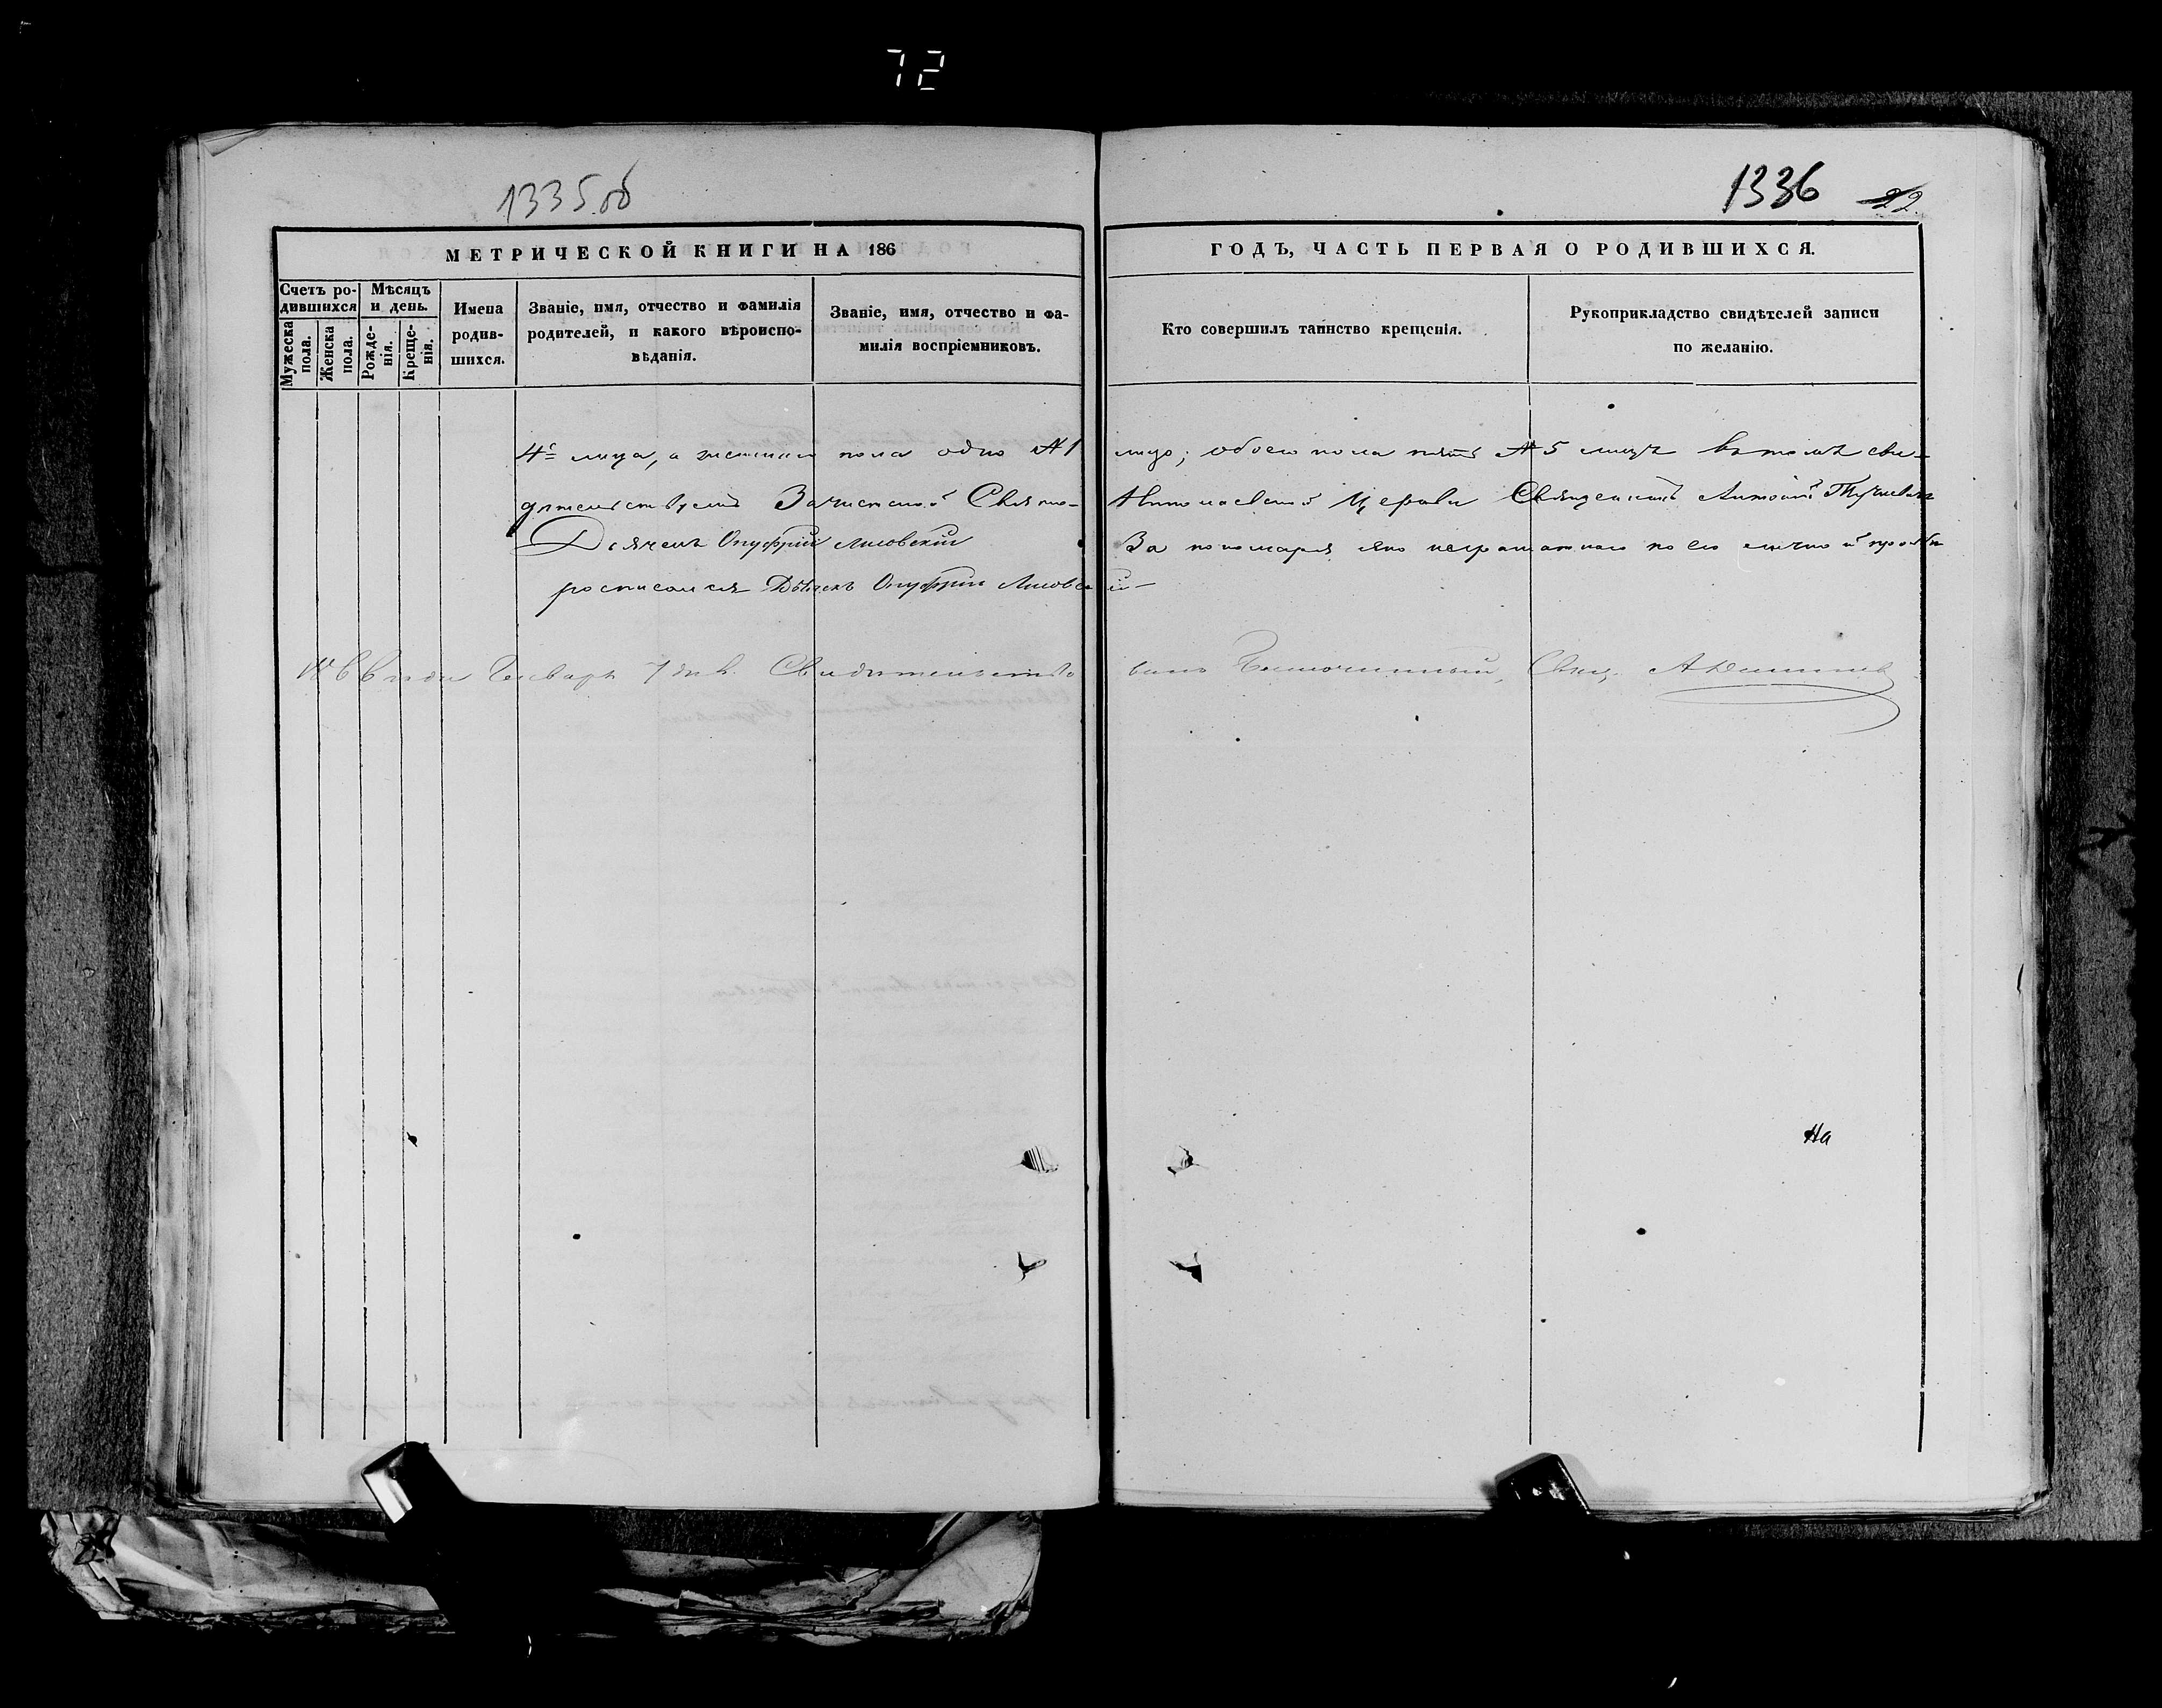 72
1335 об
1336 22
МЕТРИЧЕСКОЙ КНИГИ НА 186
ГОДЪ, ЧАСТЬ ПЕРВАЯ О РОДИВШИХСЯ.
Счетъ ро-
дившихся
Мужеска
пола.
Женска
пола.
Мѣсяцъ
и день.
Рожде-
нія.
Креще-
нія.
Имена
родив-
шихся.
Званіе, имя, отчество и фамилія
родителей, и какого вѣроиспо-
вѣданія.
Званіе, имя, отчество и фа-
милія воспріемниковъ.
Кто совершилъ таинство крещенія.
Рукоприкладство свидѣтелей записи
по желанію.
4е лица, а женска пола одно № 1 лицо; обоего пола пять № 5 лицъ въ томъ сви-
дѣтельствуемъ Свято- Николаевской Церкви Священникъ Антоній
Дьячекъ Онуфрій Лисовскій За пономаря яко неграмотнаго по его личной просьбѣ
росписался Дьячекъ Онуфрій Лисовскій
года Генваря 7 дня. Свидѣтельствовалъ Благочинный, Свящ.
На